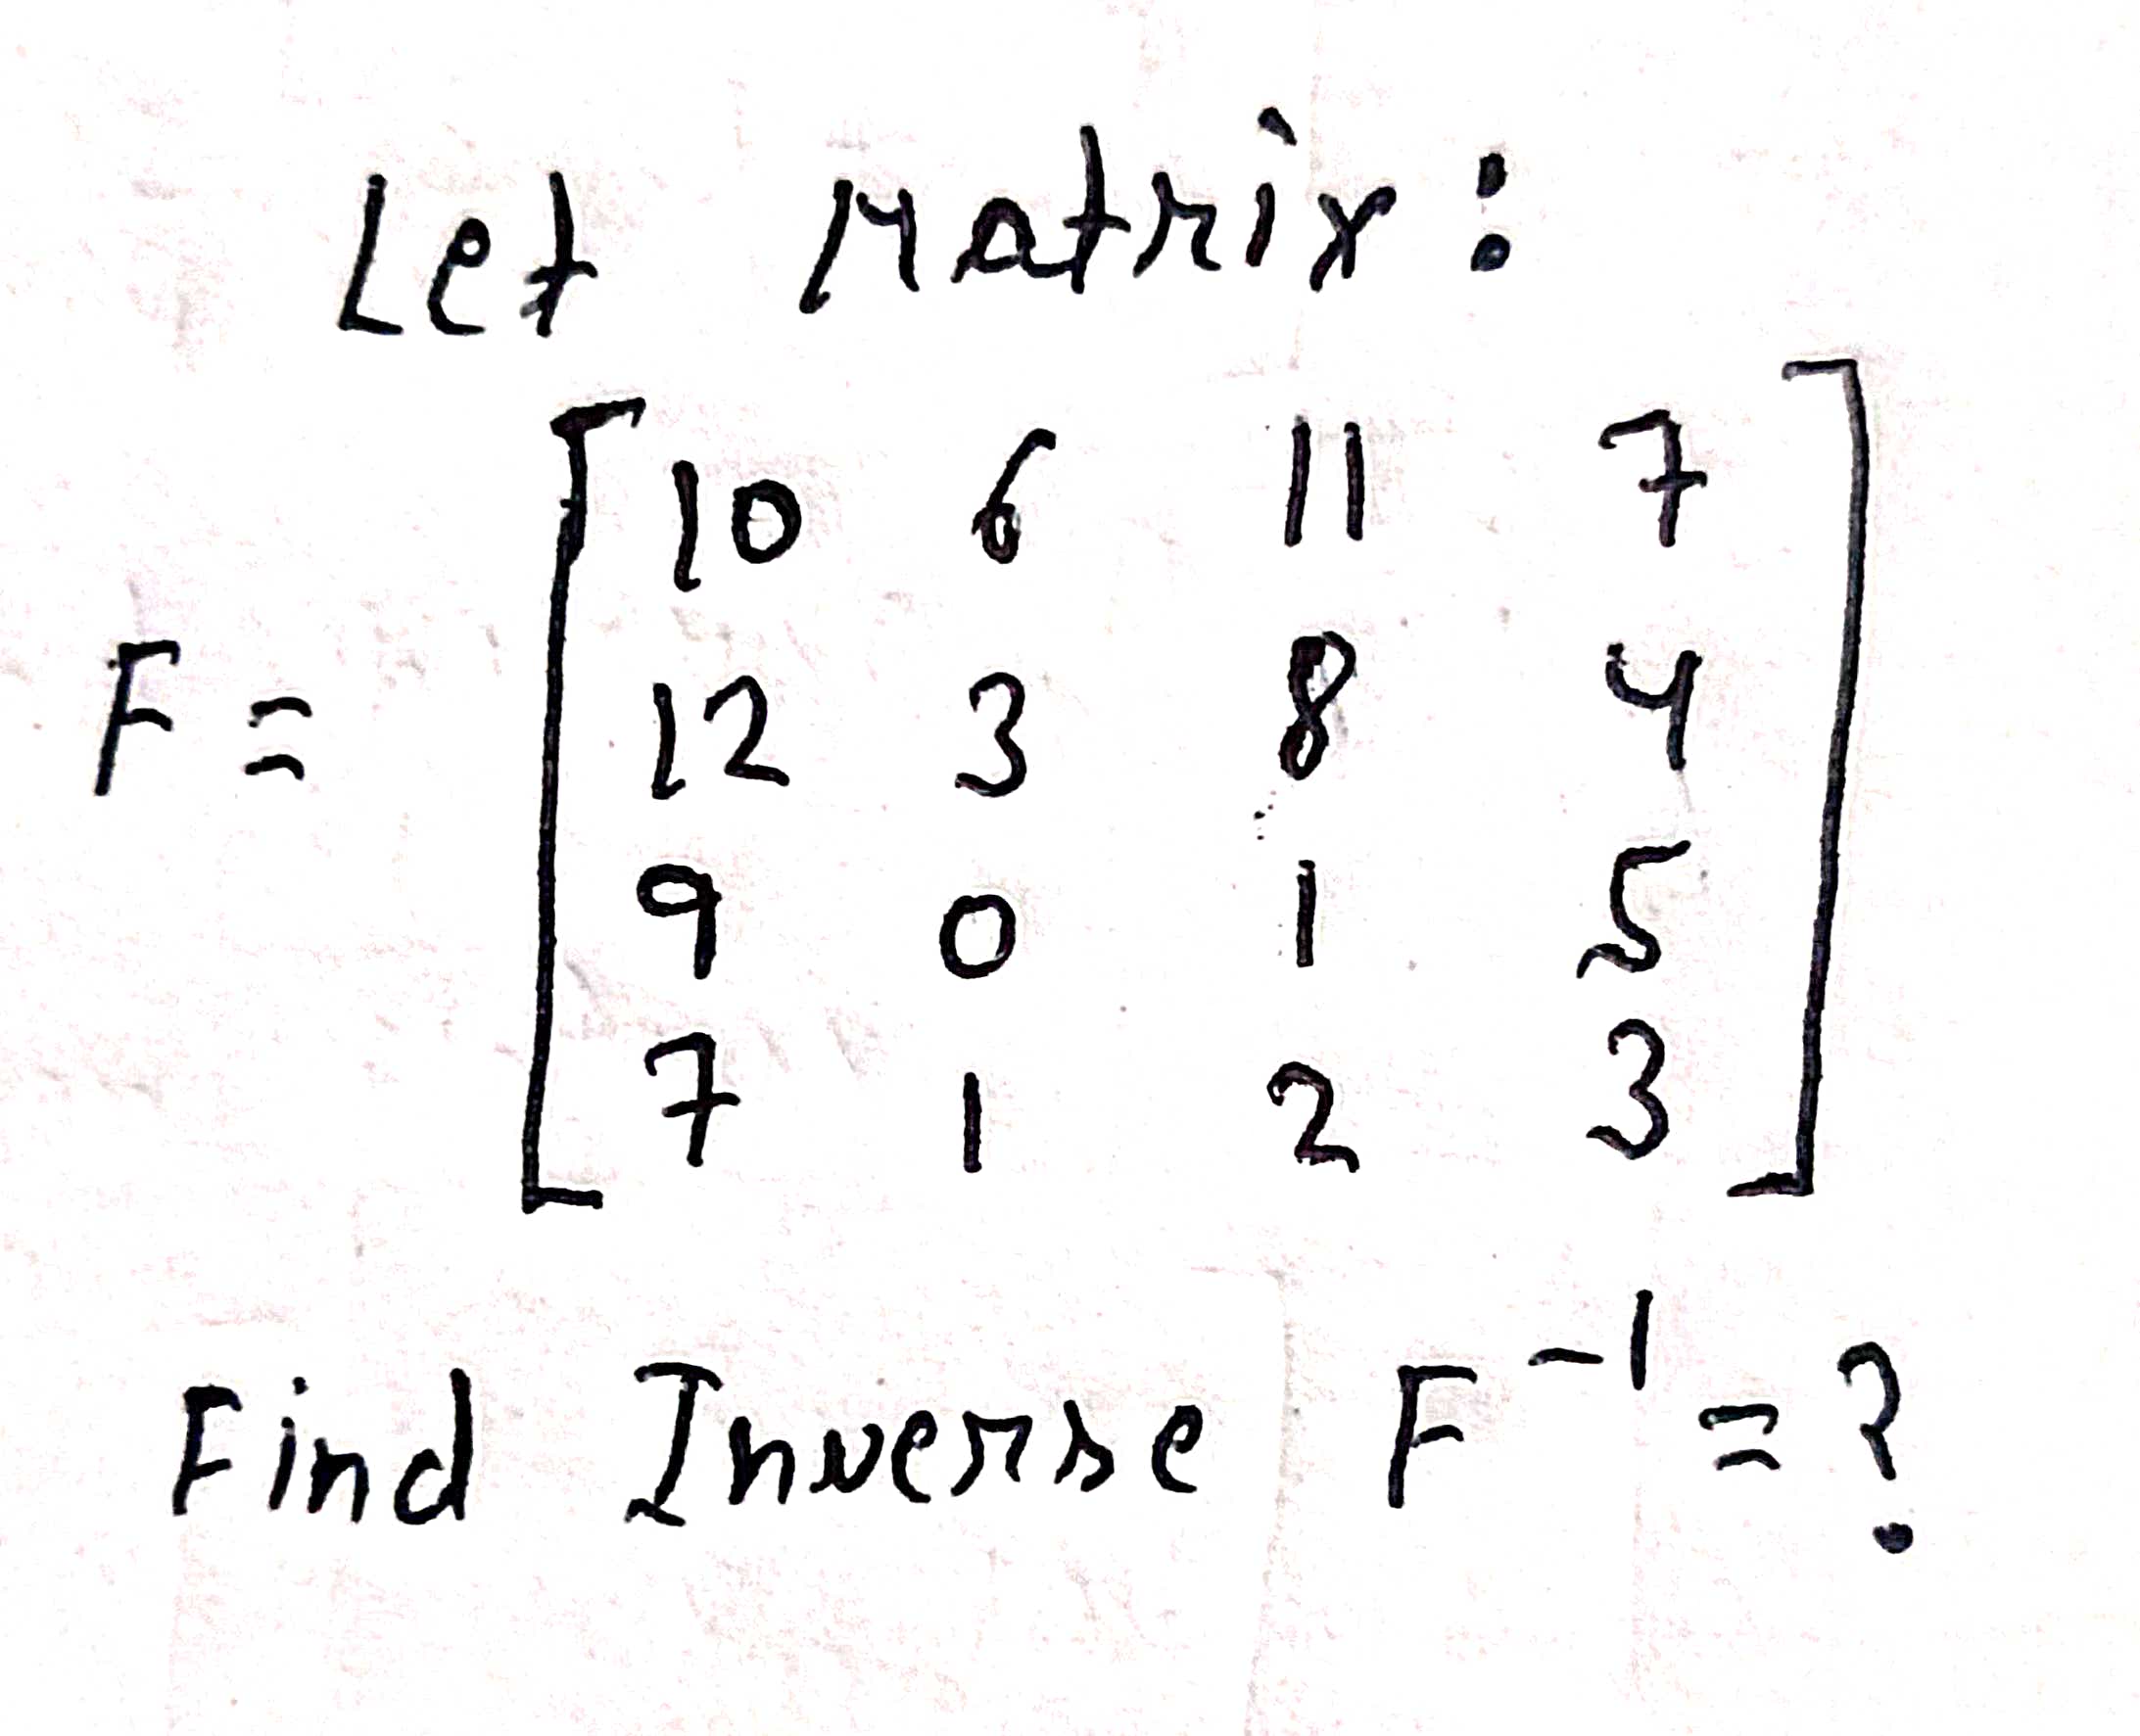 Let Matrix:
10 6 11 7
12 3 8 4
F=
9 0 1 5
7 1 2 3
Find Inverse F⁻¹=?